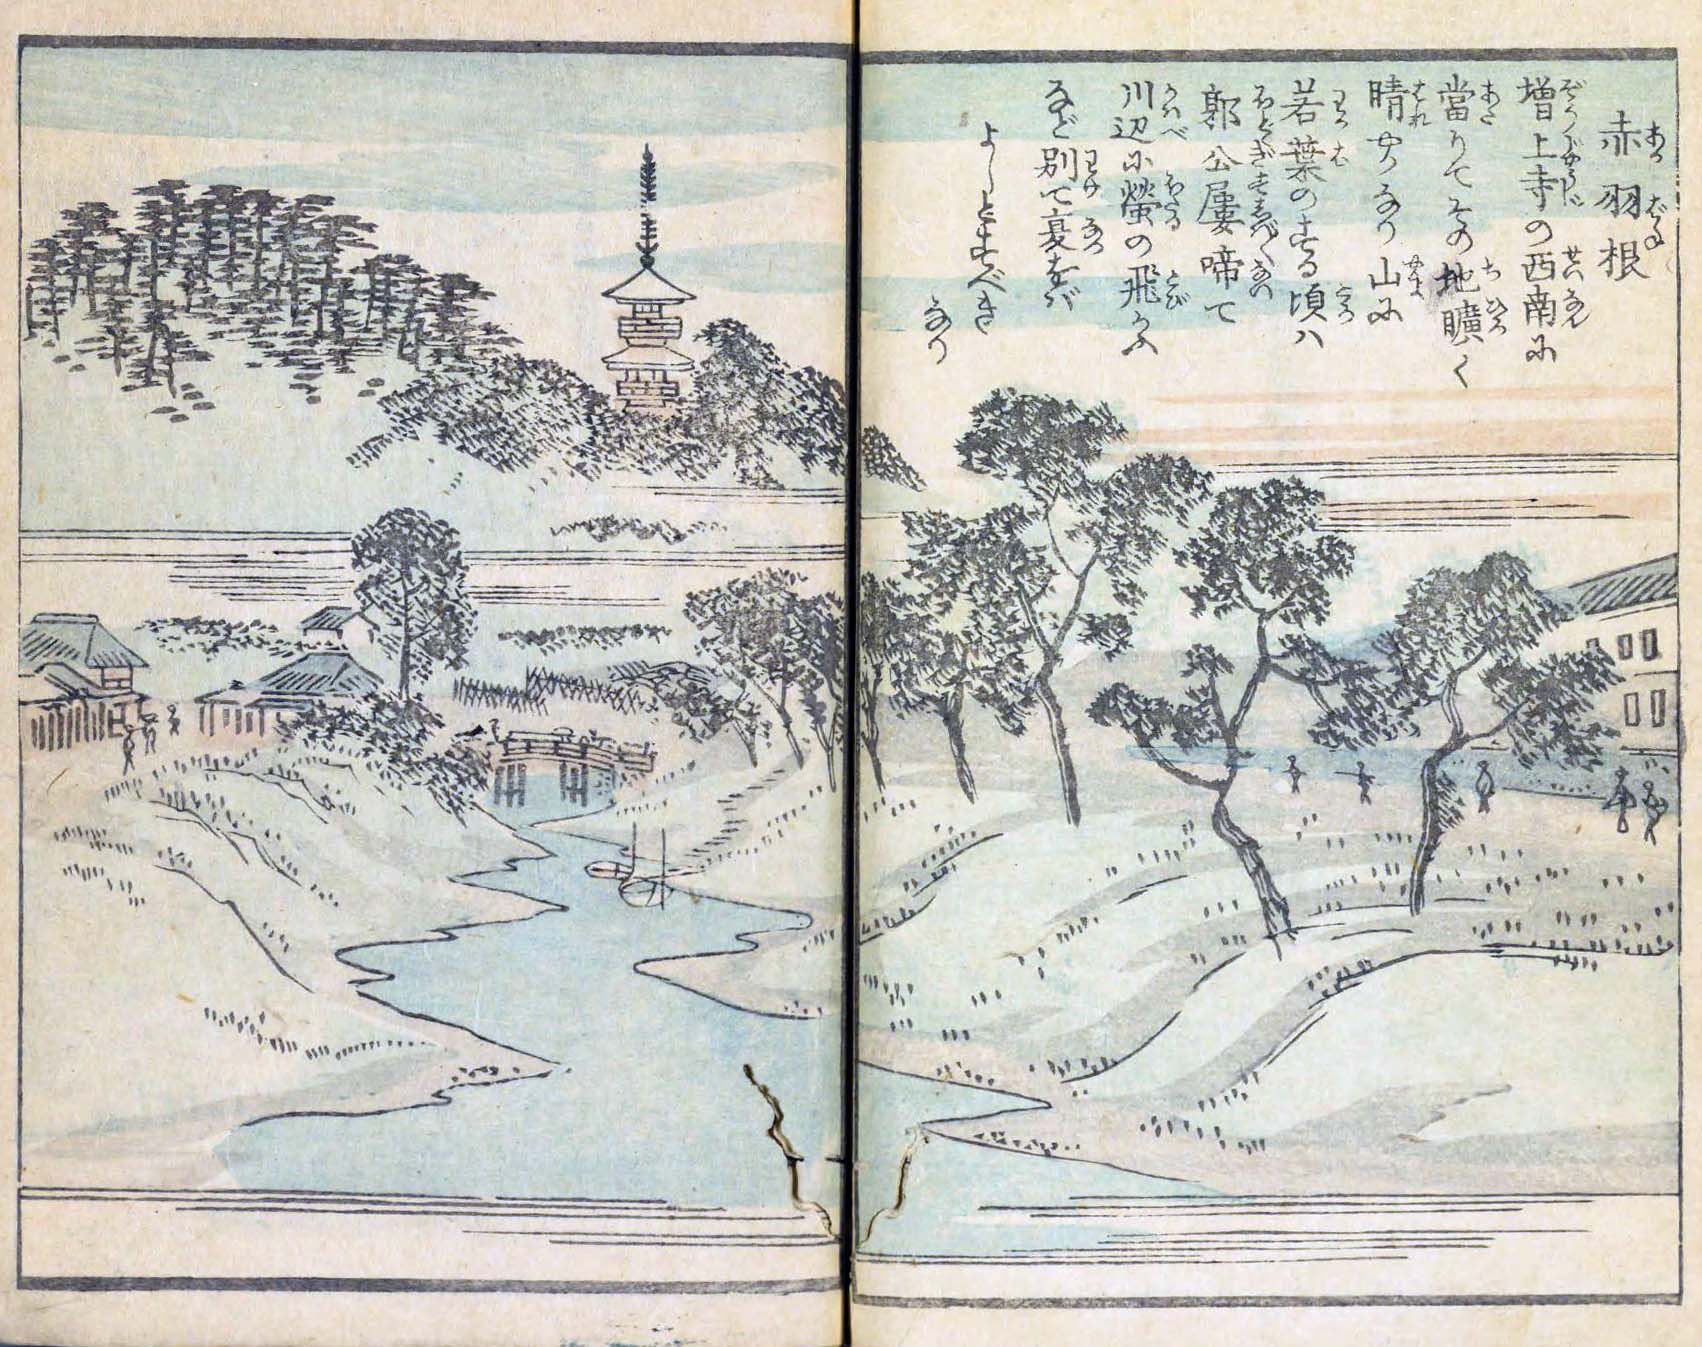 赤羽根
増上寺の西南に
當りてその地曠く
晴やかなり山に
若葉のする頃ハ
郭公屡啼て
川辺に螢の飛かふ
など別て夏をバ
よしとすべき
なり